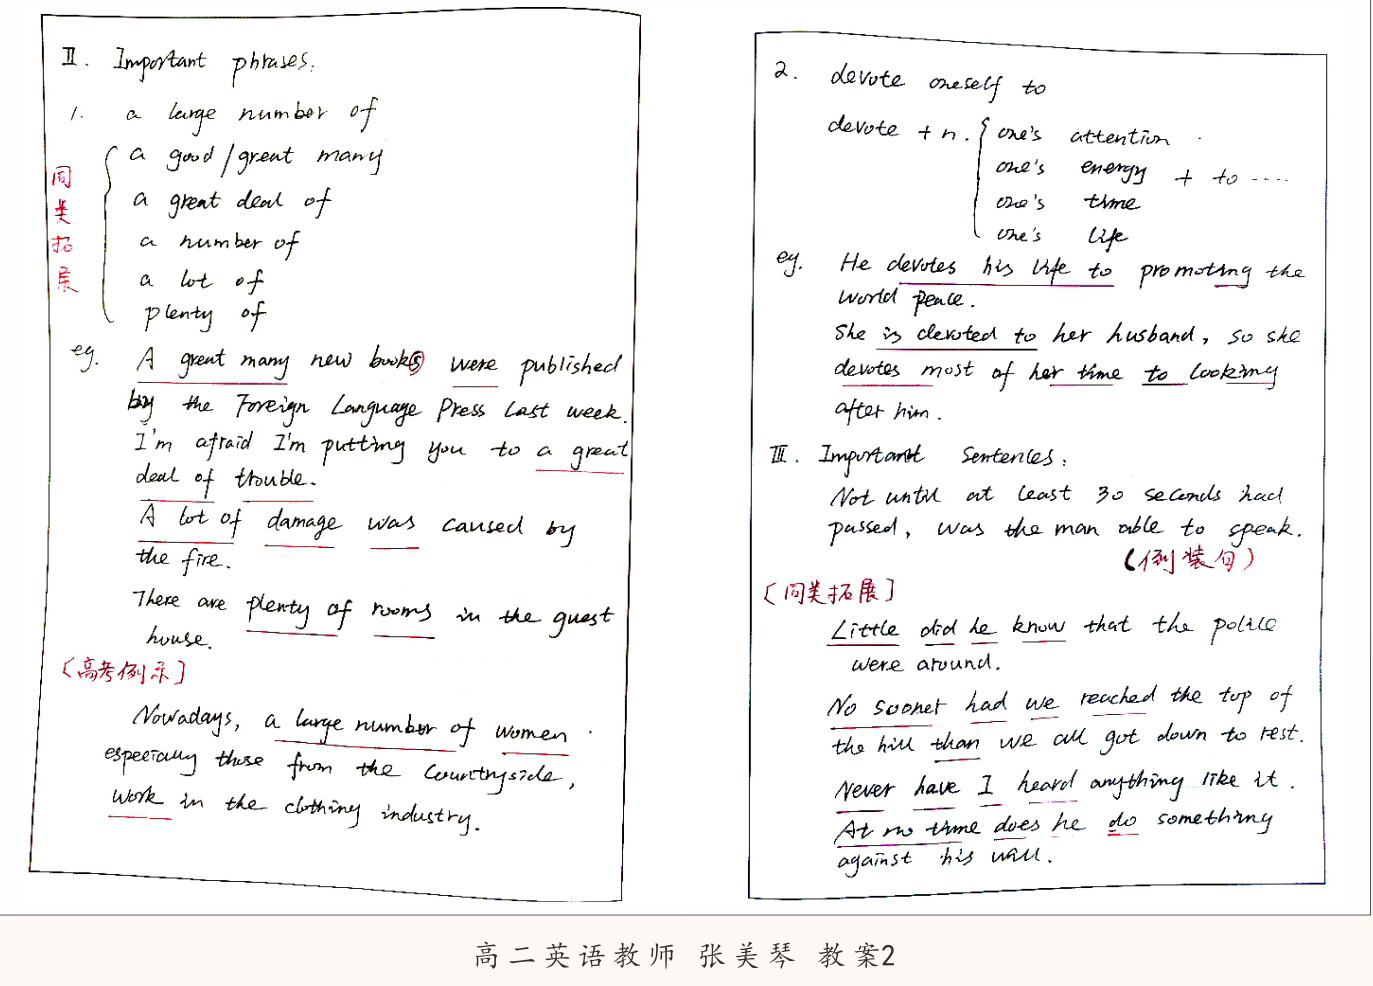 II. Important phrases:
1. a large number of
同类拓展
a good/great many
a great deal of
a number of
a lot of
plenty of
eg. A great many new books were published
by the Foreign Language Press last week.
I'm afraid I'm putting you to a great
deal of trouble.
A lot of damage was caused by
the fire.
There are plenty of rooms in the guest
house.
[高考例示]
Nowadays, a large number of women
especially those from the countryside,
work in the clothing industry.
2. devote oneself to
devote + n. { one's attention
one's energy + to ....
one's time
one's life
eg. He devotes his life to promoting the
world peace.
She is devoted to her husband, so she
devotes most of her time to looking
after him.
III. Important Sentences:
Not until at least 30 seconds had
passed, was the man able to speak.
(倒装句)
[同类拓展]
Little did he know that the police
were around.
No sooner had we reached the top of
the hill than we all got down to rest.
Never have I heard anything like it.
At no time does he do something
against his will.
高二英语教师 张美琴 教案2